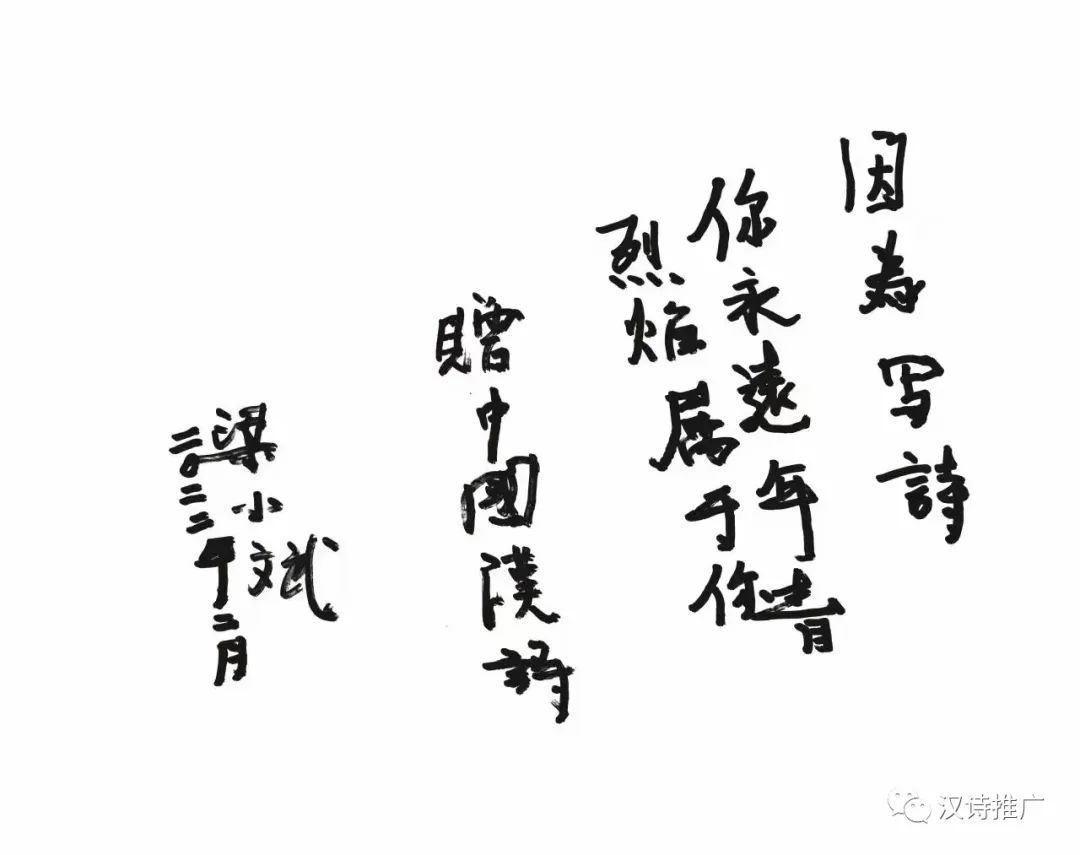 因為写詩
你永遠年青
烈焰属于你
贈中國漢詩
梁小斌
二〇二二年二月
汉诗推广